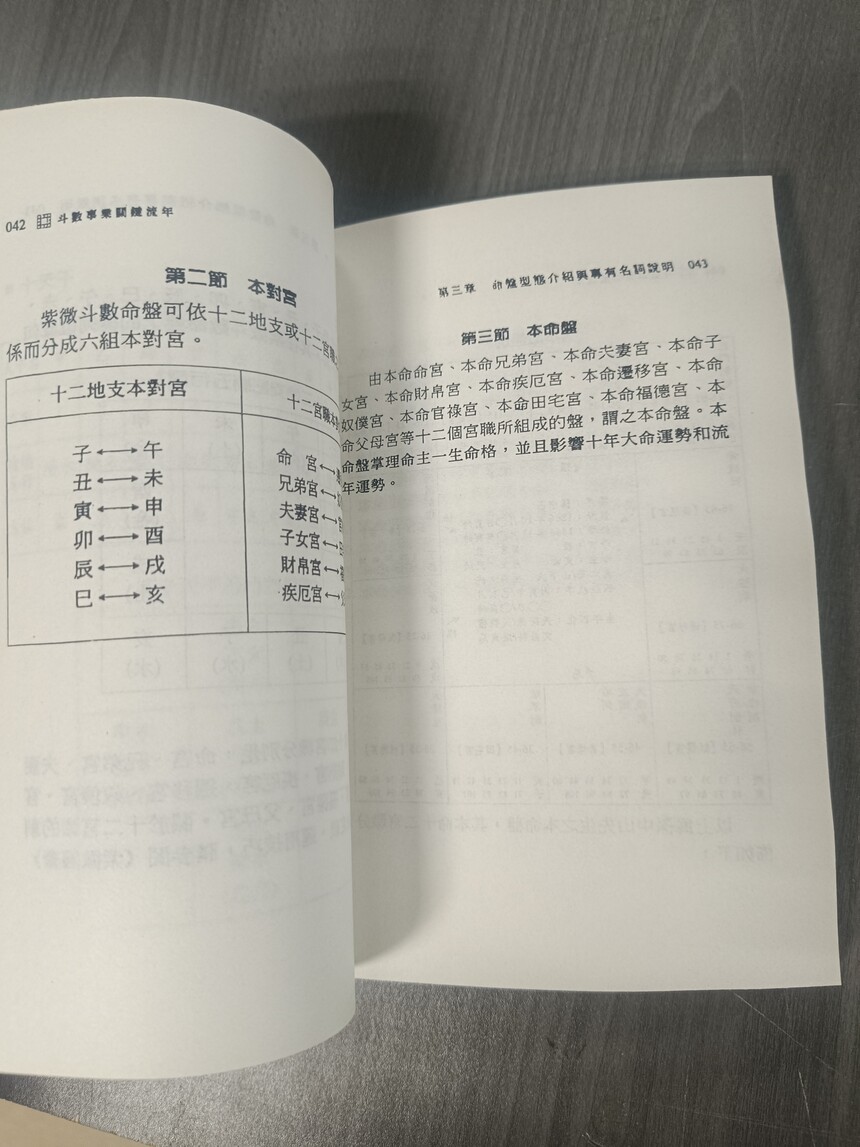 042 斗數事業關鍵流年
第二節 本對宮
紫微斗數命盤可依十二地支或十二宮職
係而分成六組本對宮。
十二地支本對宮
十二宮職本
子⟷午
丑⟷未
寅⟷申
卯⟷酉
辰⟷戌
巳⟷亥
命 宮⟷
兄弟宮⟷
夫妻宮⟷
子女宮⟷
財帛宮⟷
疾厄宮⟷
第三章 命盤型態介紹與專有名詞說明 043
第三節 本命盤
由本命命宮、本命兄弟宮、本命夫妻宮、本命子
女宮、本命財帛宮、本命疾厄宮、本命遷移宮、本命
奴僕宮、本命官祿宮、本命田宅宮、本命福德宮、本
命父母宮等十二個宮職所組成的盤，謂之本命盤。本
命盤掌理命主一生命格，並且影響十年大命運勢和流
年運勢。